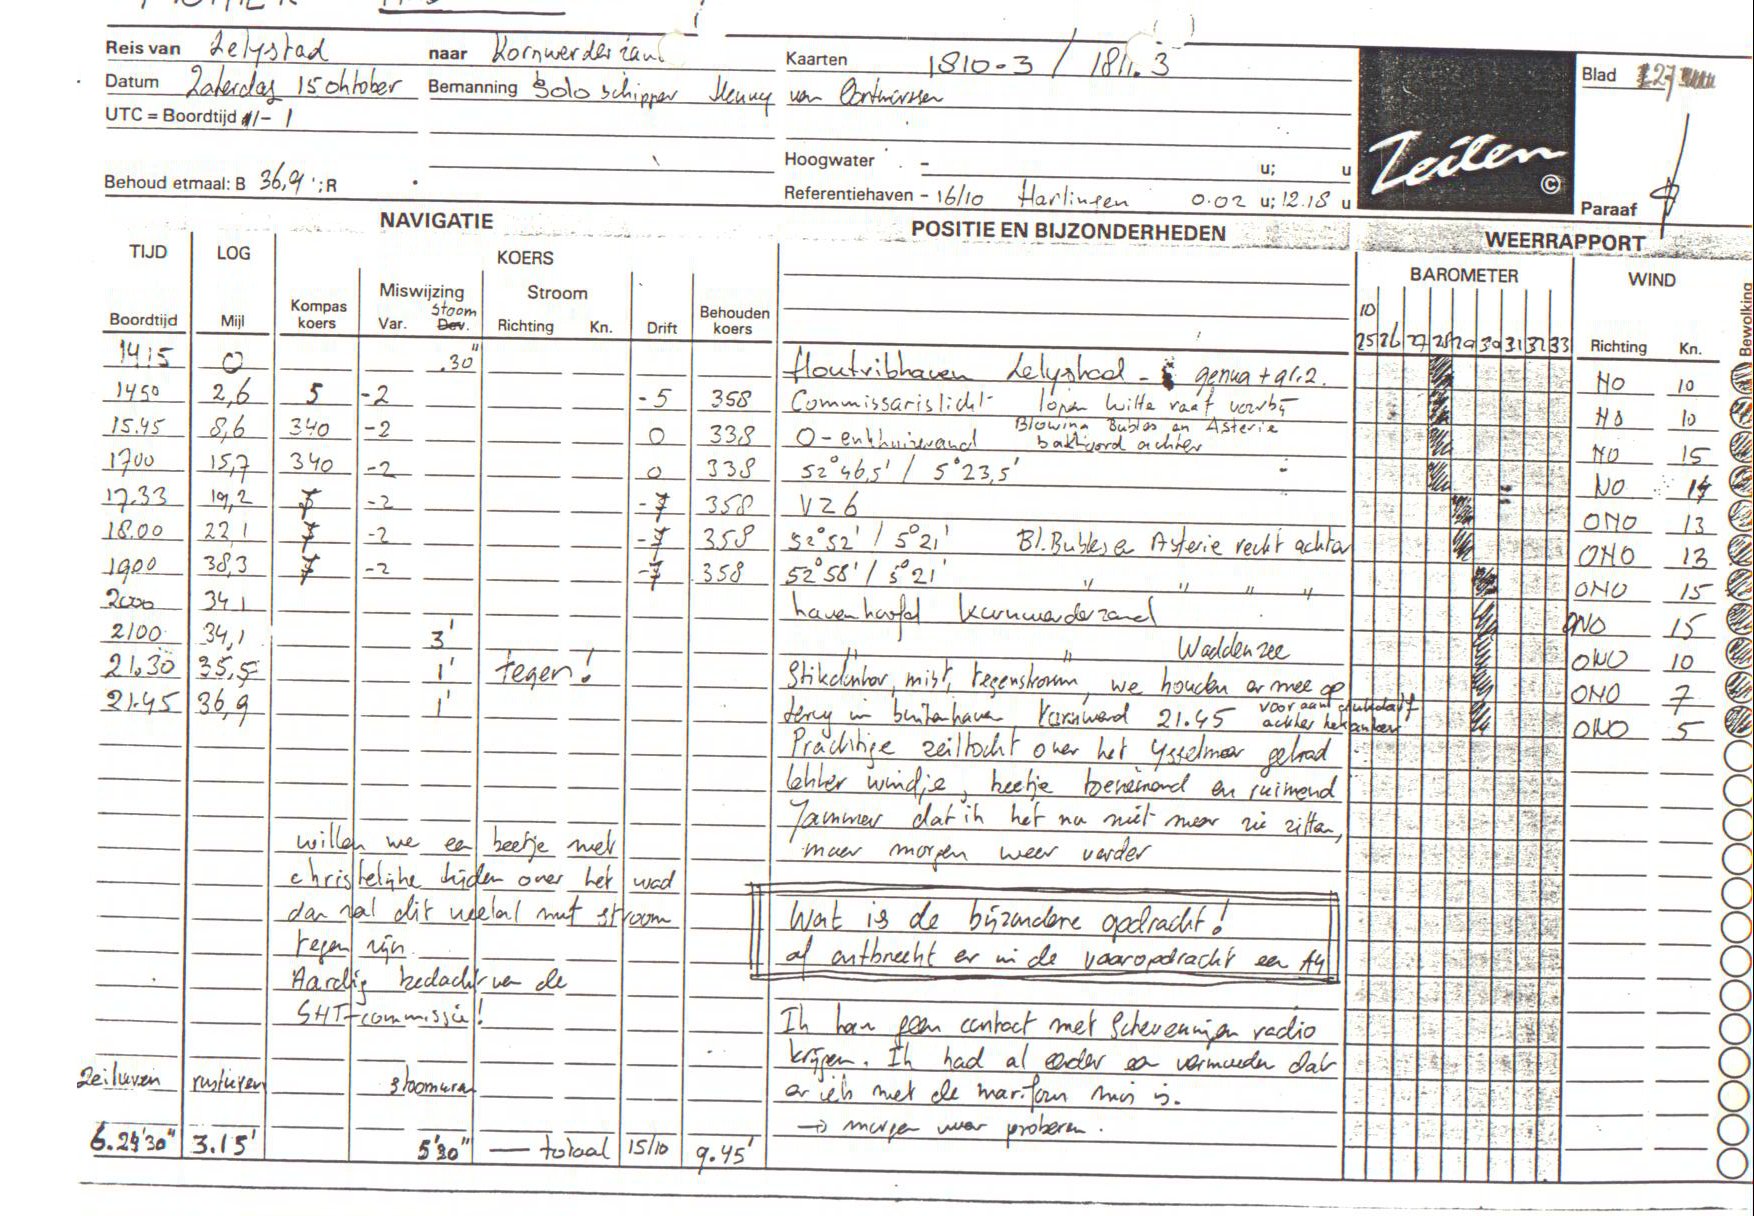 Reis van Lelystad naar Kornwerderzand Kaarten 1810-3 / 1811.3 Blad
Datum Zaterdag 15 oktober Bemanning Solo schipper Henny van
UTC = Boordtijd - 1
Hoogwater - u; u
Behoud etmaal: B 36,9 ; R Referentiehaven - 16/10 Harlingen 0.02 u; 12.18 u
Zeilen ©
Paraaf
NAVIGATIE POSITIE EN BIJZONDERHEDEN WEERRAPPORT
TIJD LOG KOERS BAROMETER WIND Bewolking
Miswijzing Stroom
Boordtijd Mijl Kompas koers Var. Dev. stoom Richting Kn. Drift Behouden koers 10 25 26 27 28 29 30 31 32 33 Richting Kn.
14.15 0 .30" Houtribhaven Lelystad - genua + gr.2. NO 10
1450 2,6 5 -2 -5 358 Commissarislicht lopen Witte raaf voorbij NO 10
15.45 8,6 340 -2 0 338 O-enkhuizerzand Blowing Bubles en Asterie bakboord achter NO 15
1700 15,7 340 -2 0 338 52°46,5' / 5°23,5' NO 14
17.33 19,2 -2 358 VZ6 ONO 13
18.00 22,1 -2 358 52°52' / 5°21' Bl. Bubles en Asterie recht achter ONO 13
1900 38,3 -2 358 52°58' / 5°21' " " " " ONO 15
2000 34,1 havenhoofd Kornwerderzand ONO 15
2100 34,1 3' " " Waddenzee ONO 10
21.30 35,5 1' tegen! Stikdonker, mist, tegenstroom, we houden er mee op ONO 7
21.45 36,9 1' terug in buitenhaven Kornwerd 21.45 achter het anker ONO 5
Prachtige zeiltocht over het IJsselmeer gehad
lekker windje, beetje toenemend en ruimend
Jammer dat ik het nu niet meer zie zitten,
maar morgen weer verder
willen we een beetje met
christelijke tijden over het wad
dan zal dit veelal met stroom
tegen zijn.
Aardig bedacht van de
SHT-commissie!
Wat is de bijzondere opdracht!
al ontbreekt er in de vaaropdracht een A4
Ik kan geen contact met Scheveningen radio
krijgen. Ik had al eerder een vermoeden dat
er iets met de marifoon mis is.
→ morgen weer proberen.
Zeiluren rusturen stoomuren
6.29'30" 3.15' 5'30" — totaal 15/10 9.45'